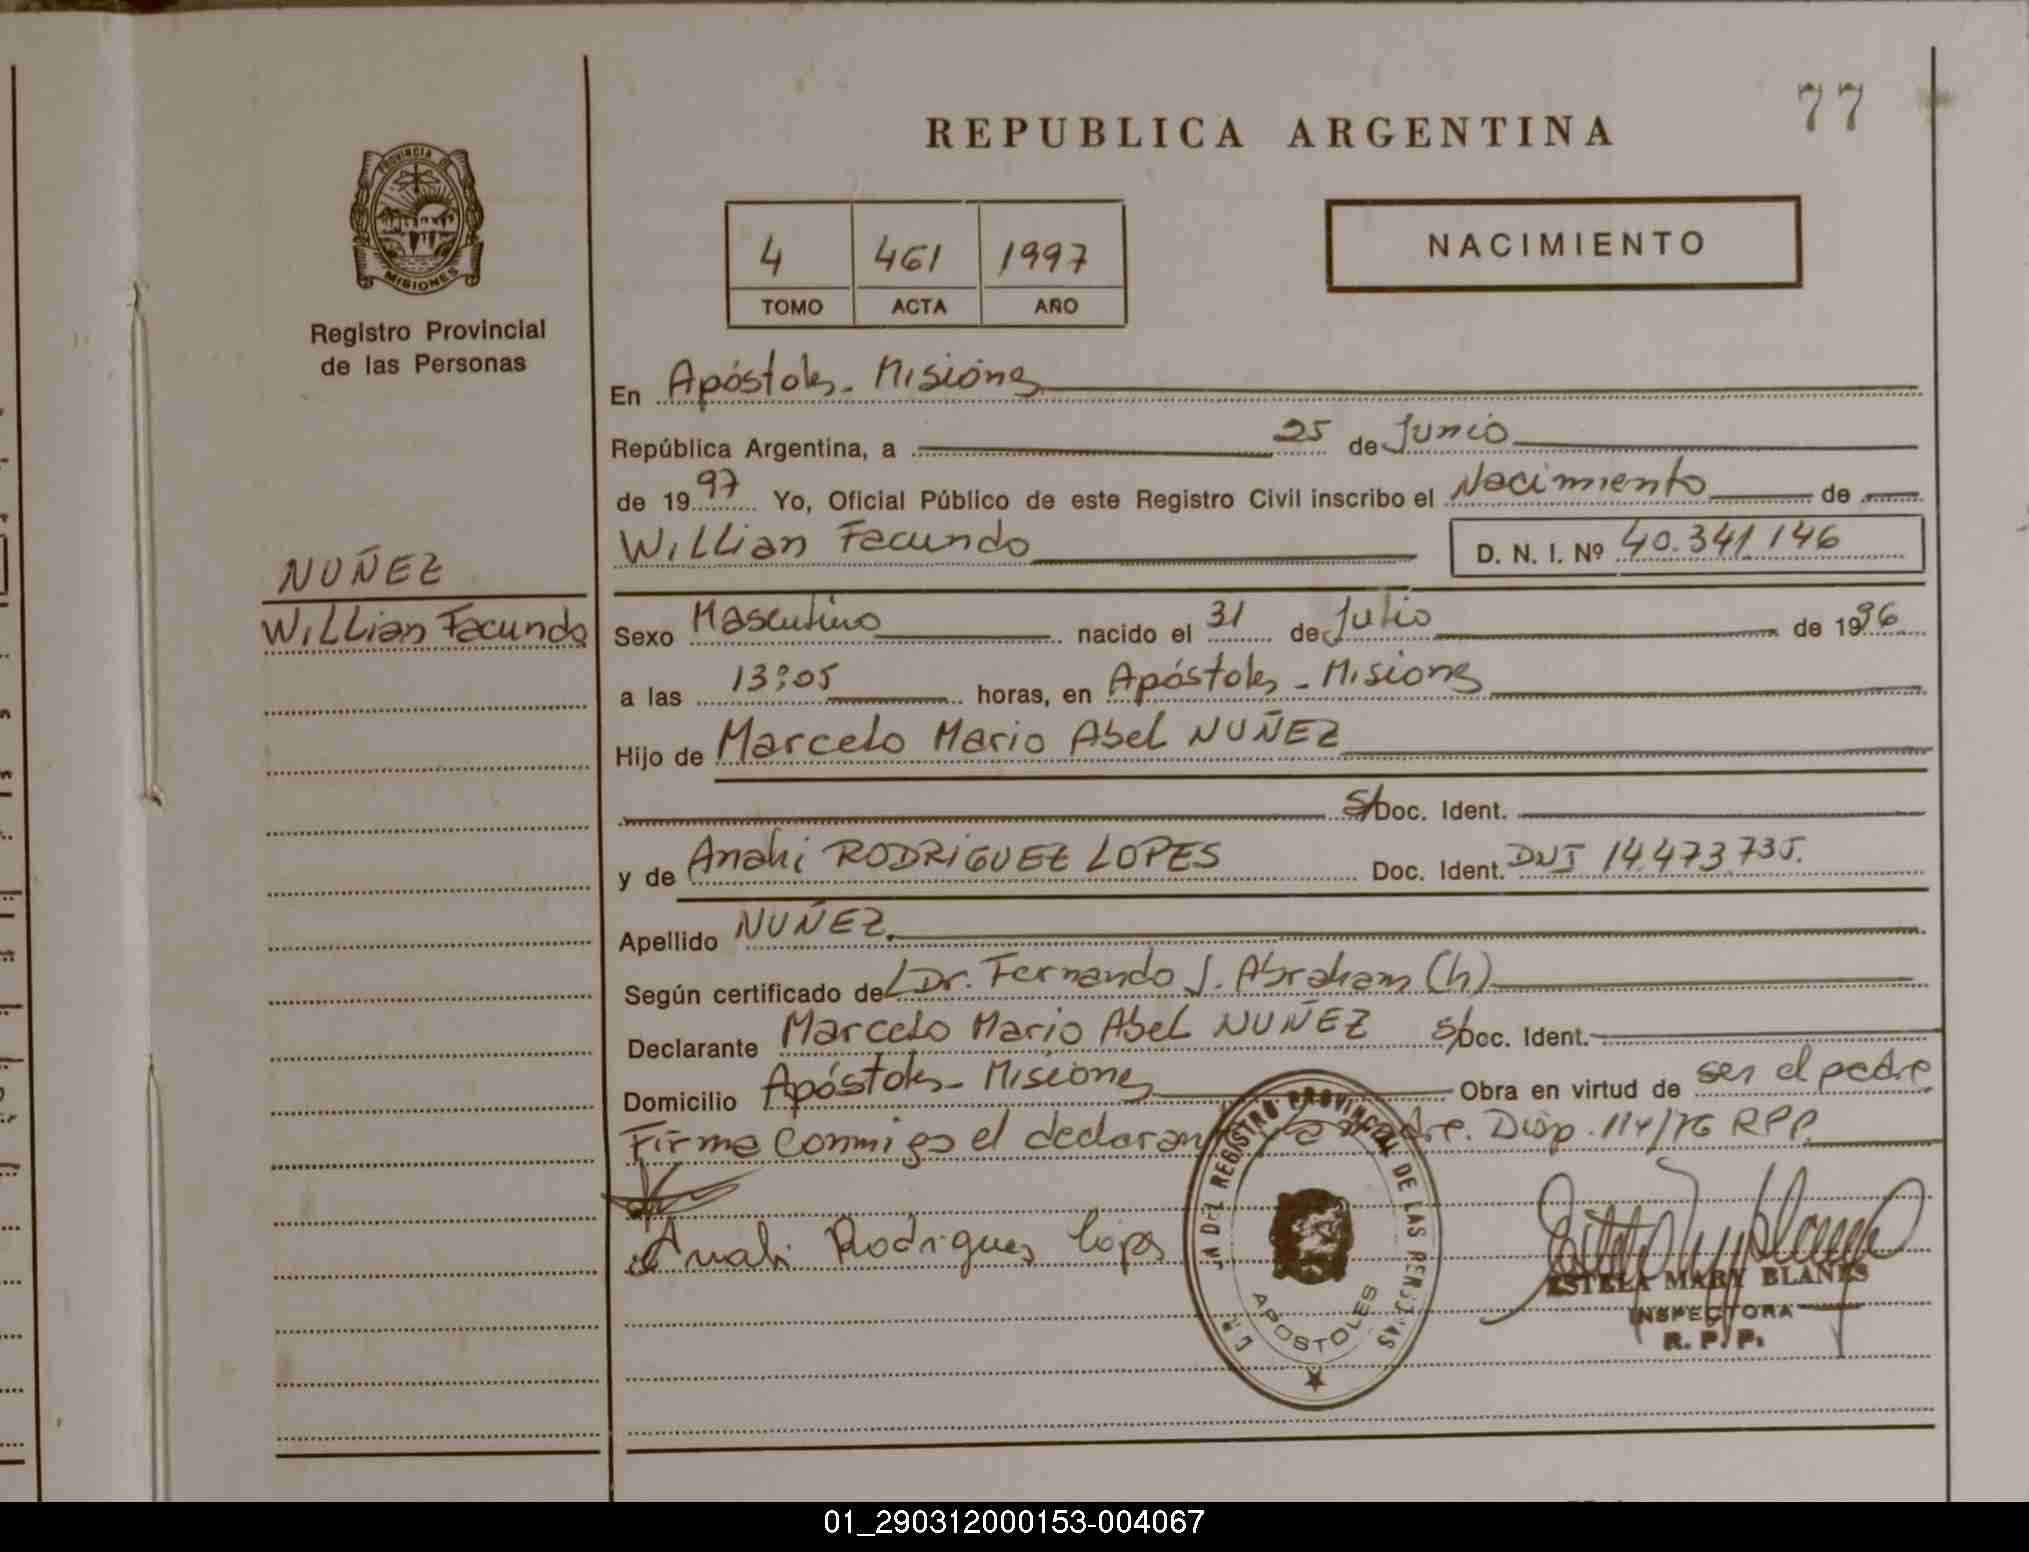 77
REPUBLICA ARGENTINA
PROVINCIA DE
MISIONES
Registro Provincial
de las Personas
4 461 1997
TOMO ACTA AÑO
NACIMIENTO
En Apóstoles - Misiones
República Argentina, a 25 de Junio
de 1997 Yo, Oficial Público de este Registro Civil inscribo el Nacimiento de
Willian Facundo D. N. I. Nº 40.341.146
NUÑEZ
Willian Facundo
Sexo Masculino nacido el 31 de Julio de 1996
a las 13:05 horas, en Apóstoles - Misiones
Hijo de Marcelo Mario Abel NUÑEZ
S/Doc. Ident.
y de Anahi RODRIGUEZ LOPES Doc. Ident. DNI 14.473.735.
Apellido NUÑEZ.
Según certificado del Dr. Fernando J. Abraham (h)
Declarante Marcelo Mario Abel NUÑEZ S/Doc. Ident.
Domicilio Apóstoles - Misiones Obra en virtud de ser el padre
Firma conmigo el declarante y la madre. Disp. 114/76 RPP.
Anahi Rodrigues Lopes
DEL REGISTRO PROVINCIAL DE LAS PERSONAS
APOSTOLES
ESTELA MARY BLANES
INSPECTORA
R. P. P.
01_290312000153-004067